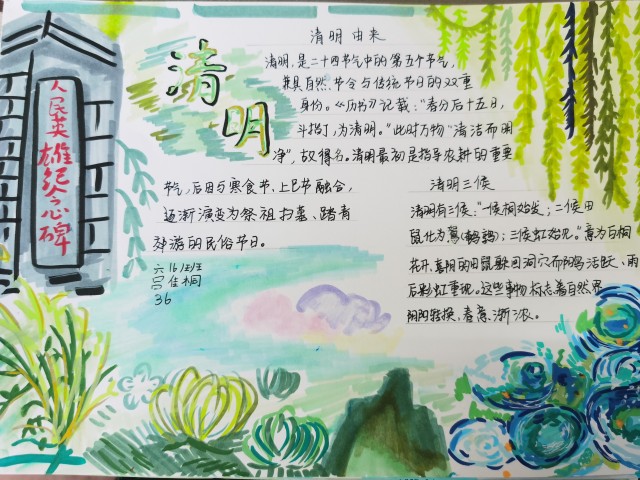 清明
人民英雄纪念碑
清明由来
清明,是二十四节气中的第五个节气,
兼具自然、节令与传统节日的双重
身份。《历书》记载:"春分后十五日,
斗指丁,为清明。"此时万物"清洁而明
净",故得名。清明最初是指导农耕的重要
节气,后因与寒食节、上巳节融合,
逐渐演变为祭祖扫墓、踏青
郊游的民俗节日。
六
吕佳桐
36
清明三候
清明有三候:"一候桐始发;二候田
鼠化为鴽(鹌鹑);三候虹始见。"意为白桐
花开,喜阴的田鼠躲回洞穴而阳鸟活跃、雨
后彩虹重现。这些事物标志着自然界
阴阳转换、春意渐浓。